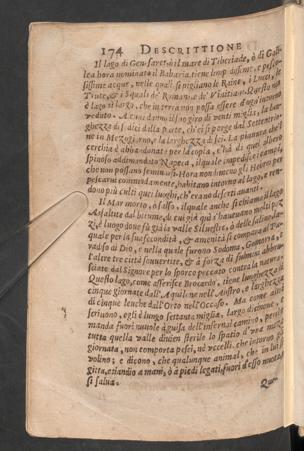 174 DESCRITTIONE
Il lago di Genesaret, ò il mare di Tiberiade, ò di Gali-
lea hora nominato il Babaria, tiene limpidissime, e pesco-
sissime acque, nelle quali si pigliano le Raine, i Lucci, le
Tinche, & i Squali de' Romani
è lago sì largo, che in terra non possa essere d'ogn'intorno
veduto. A costui danno il suo giro di venti miglia, la lar-
ghezza di dieci dalla parte, ch'ei si porge dal Settentrio-
ne in Mezogiorno, la larghezza di sei. La pianura che il
cerchia è abbandonata per la copia, c'hà di quel albero
spinoso addimandato Napeca, il quale impedisce i campi,
che non possano seminarsi. Hora non dimeno gli Hebrei per
pescarui commodamente, habitano intorno al lago, e ren-
dono più culti quei luoghi, ch'erano deserti auanti.
Il Mar morto, ò salso, il quale anche si chiama il lago
Asfaltite dal bitume, di cui già quà s'haueuano molti poz-
zi, e luogo doue sù già la valle Siluestre, ò delle saline
quale per la sua fecondità, & amenità si compara al Pa-
radiso di Dio, e nella quale furono Sodoma, Gomorra, e
l'altre trè città souuertite, & à forza di fulmini abbru-
sciate dal Signore per lo sporco peccato contra la natura.
Questo lago, come asserisce Brocardo, tiene lunghezza di
cinque giornate dall'Aquilone nell'Austro, e larghezza
di cinque leuche dall'Orto nell'Occaso. Ma come altri
scriuono, egli è lungo settanta miglia, largo dicinoue,
manda fuori nuuole à guisa dell'infernal camino, per cui
tutta quella valle diuien sterile lo spatio d'una meza
giornata, non comporta pesci, nè vccelli, che intorno gli
volino; e dicono, che qualunque animal, che in lui si
gitta, etiandio a mani, ò à piedi legati, fuori d'esso nuota,
si salua.